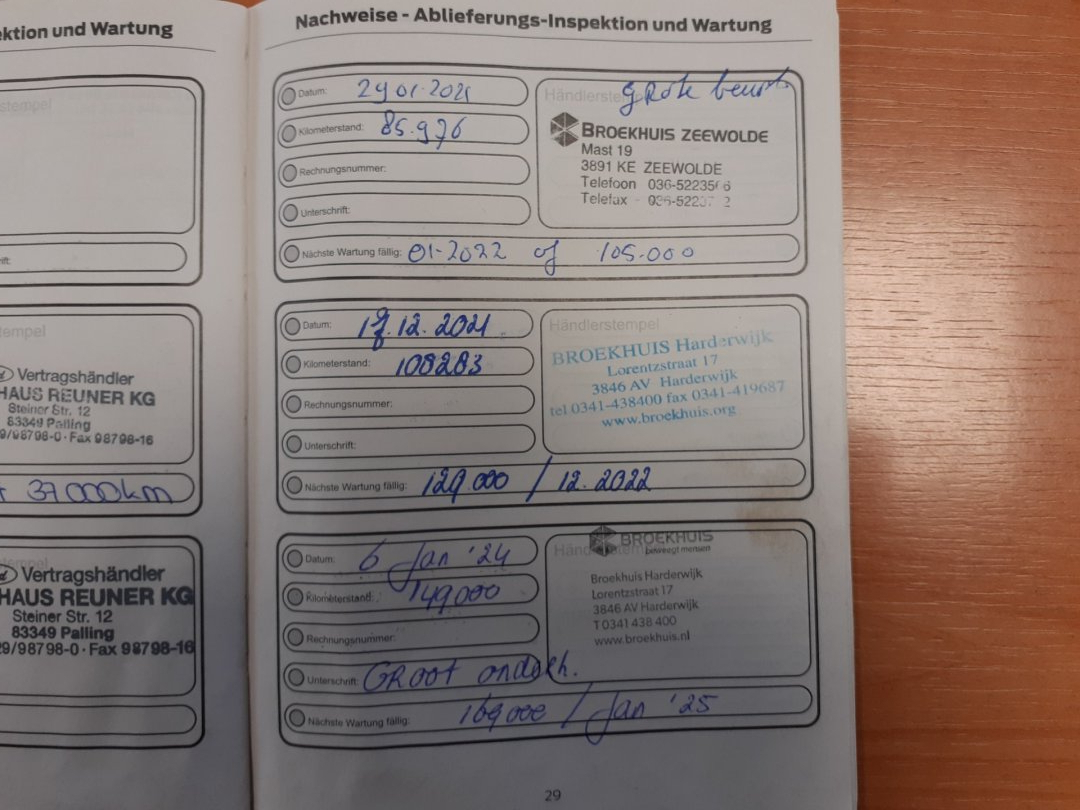 ektion und Wartung
stempel
ft:
tempel
Vertragshändler
HAUS REUNER KG
Steiner Str. 12
83349 Palling
9/98798-0 · Fax 98798-16
37000km
Vertragshändler
HAUS REUNER KG
Steiner Str. 12
83349 Palling
29/98798-0 · Fax 98798-16
Nachweise - Ablieferungs-Inspektion und Wartung
Datum: 29 01·2021
Kilometerstand: 85.976
Rechnungsnummer:
Unterschrift:
Händlerstem
grote beurt
BROEKHUIS ZEEWOLDE
Mast 19
3891 KE ZEEWOLDE
Telefoon 036-52235 6
Telefax - 036-522 2
Nächste Wartung fällig: 01-2022 of 105.000
Datum: 12.2021
Kilometerstand: 108283
Rechnungsnummer:
Unterschrift:
Händlerstempel
BROEKHUIS Harderwijk
Lorentzstraat 17
3846 AV Harderwijk
tel.0341-438400 fax 0341-419687
www.broekhuis.org
Nächste Wartung fällig: 129.000 / 12.2022
Datum: 6 Jan '24
Kilometerstand: 149000
Rechnungsnummer:
Unterschrift: GROOT onderh.
Händ
BROEKHUIS
beweegt mensen
Broekhuis Harderwijk
Lorentzstraat 17
3846 AV Harderwijk
T 0341 438 400
www.broekhuis.nl
Nächste Wartung fällig: 169000 / Jan '25
29